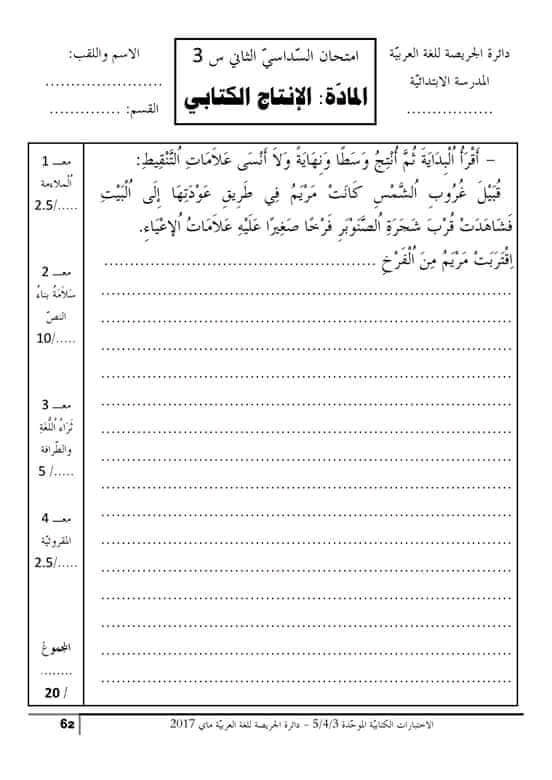 دائرة الجريصة للغة العربيّة
المدرسة الابتدائيّة
................
امتحان السّداسيّ الثاني س 3
المادّة: الإنتاج الكتابي
الاسم واللقب:
......................
القسم: .............
– أَقْرَأُ اُلْبِدَايَةَ ثُمَّ أُنْتِجُ وَسَطًا وَنِهَايَةً وَلاَ أَنْسَى عَلاَمَاتِ اُلتَّنْقِيطِ:
قُبَيْلَ غُرُوبِ اُلشَّمْسِ كَانَتْ مَرْيَمُ فِي طَرِيقِ عَوْدَتِهَا إِلَى اُلْبَيْتِ
فَشَاهَدَتْ قُرْبَ شَجَرَةِ اُلصَّنَوْبَرِ فَرْخًا صَغِيرًا عَلَيْهِ عَلاَمَاتُ اُلإِعْيَاءِ.
اِقْتَرَبَتْ مَرْيَمُ مِنَ اُلْفَرْخِ ................................................
معـ 1
اُلملاءمة
2.5/.....
معـ 2
سَلاَمَةُ بناءُ
النصّ
10/.....
معـ 3
ثَرَاءُ اُللُّغَةِ
والطّرافة
5 /.....
معـ 4
المقروئيّة
2.5/.....
المجموعُ
........
20 /
الاختبارات الكتابيّة الموحّدة 5/4/3 – دائرة الجريصة للغة العربيّة ماي 2017
62